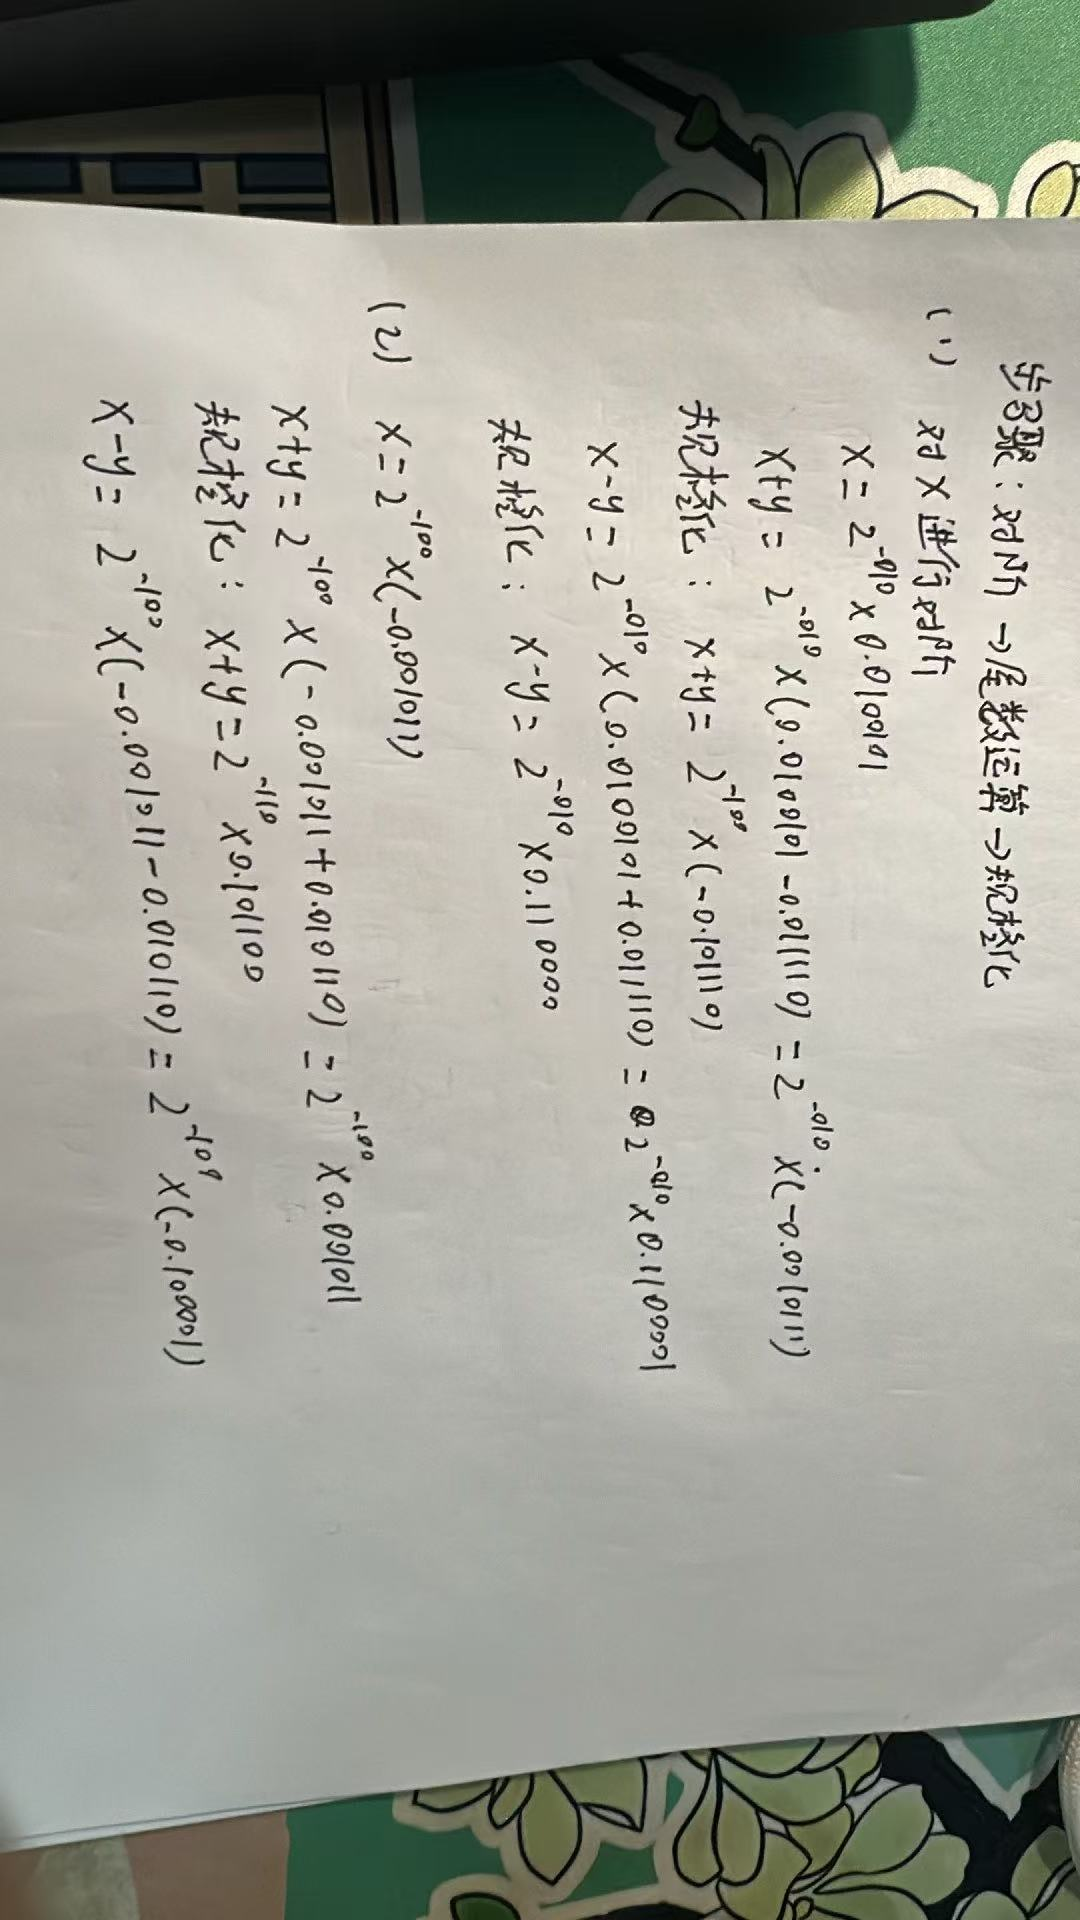 步骤：对阶→尾数运算→规格化
(1) 对X进行对阶
X = 2^-010 × 0.0100101
X+y = 2^-010 × (0.0100101 - 0.011110) = 2^-010 × (-0.0010111)
规格化： X+y = 2^-100 × (-0.101110)
X-y = 2^-010 × (0.0100101 + 0.011110) = 2^-010 × 0.1100001
规格化： X-y = 2^-010 × 0.110000
(2) X = 2^-100 × (-0.001011)
X+y = 2^-100 × (-0.001011 + 0.010110) = 2^-100 × 0.001011
规格化： X+y = 2^-110 × 0.101100
X-y = 2^-100 × (-0.001011 - 0.010110) = 2^-100 × (-0.100001)